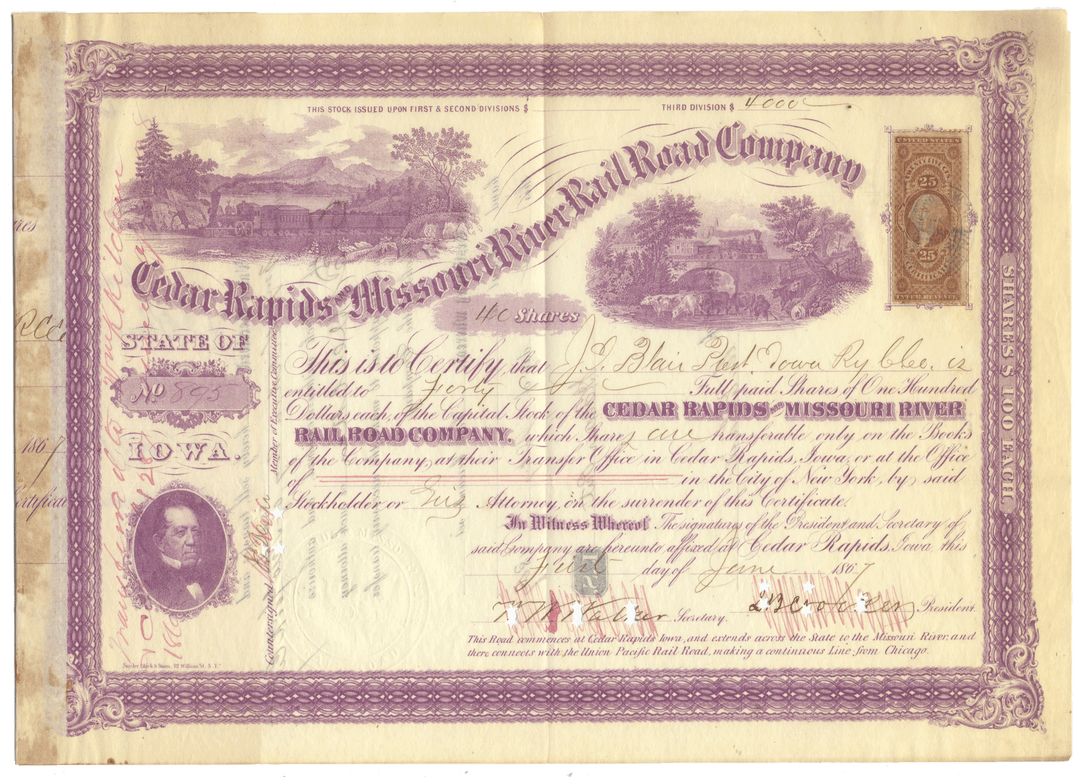 THIS STOCK ISSUED UPON FIRST & SECOND DIVISIONS $ THIRD DIVISION $ 4000
Cedar Rapids and Missouri River Rail Road Company
UNITED STATES
25
25
CERTIFICATE
INTER. REVENUE
40 Shares
STATE OF
No 895
IOWA.
1867
This is to Certify that J. I. Blair Prest. Iowa Ry is
entitled to Forty Full paid Shares of One Hundred
Dollars each, of the Capital Stock of the CEDAR RAPIDS AND MISSOURI RIVER
RAIL ROAD COMPANY, which Shares are transferable only on the Books
of the Company, at their Transfer Office in Cedar Rapids, Iowa, or at the Office
of in the City of New York, by said
Stockholder or his Attorney, on the surrender of this Certificate.
In Witness Whereof The signatures of the President and Secretary of
said Company are hereunto affixed at Cedar Rapids, Iowa this
First day of June 1867
W. W. Walker Secretary. L B Crocker President.
This Road commences at Cedar Rapids Iowa, and extends across the State to the Missouri River; and
there connects with the Union Pacific Rail Road, making a continuous Line from Chicago.
Countersigned Member of Executive Committee
SHARES $100 EACH.
Snyder Black & Sturn, 92 William St. N.Y.